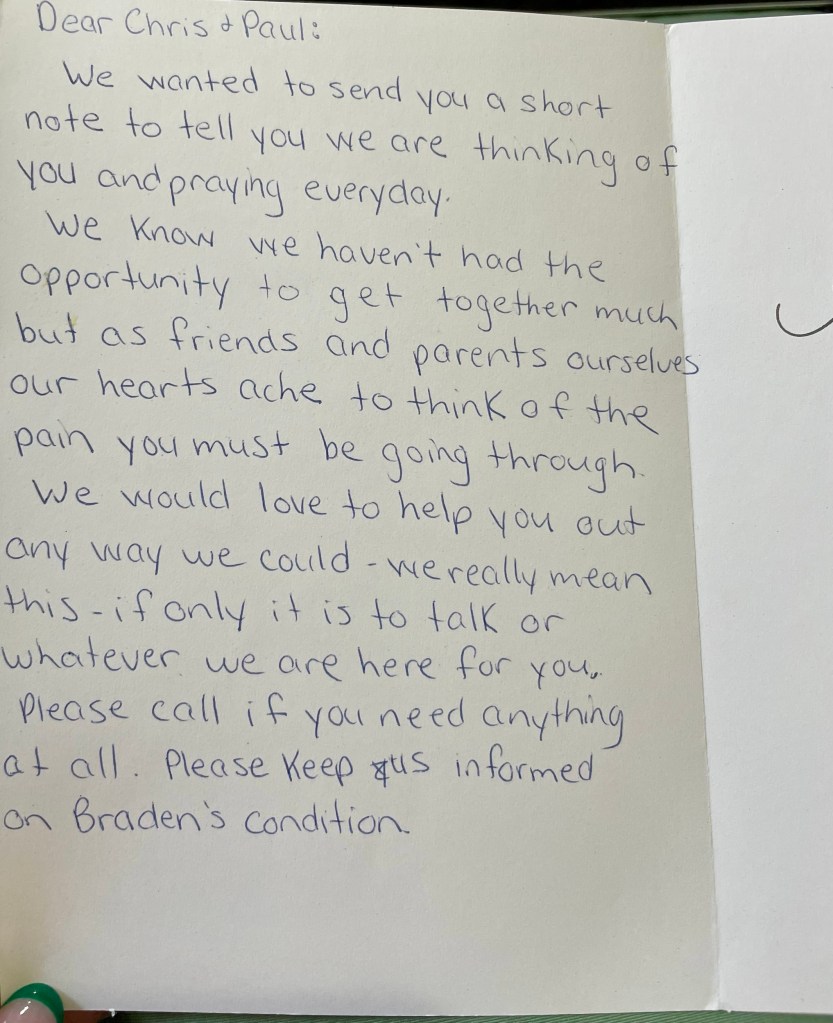 Dear Chris & Paul:
We wanted to send you a short
note to tell you we are thinking of
you and praying everyday.
We know we haven't had the
opportunity to get together much
but as friends and parents ourselves
our hearts ache to think of the
pain you must be going through.
We would love to help you out
any way we could - we really mean
this - if only it is to talk or
whatever we are here for you.
Please call if you need anything
at all. Please keep us informed
on Braden's condition.